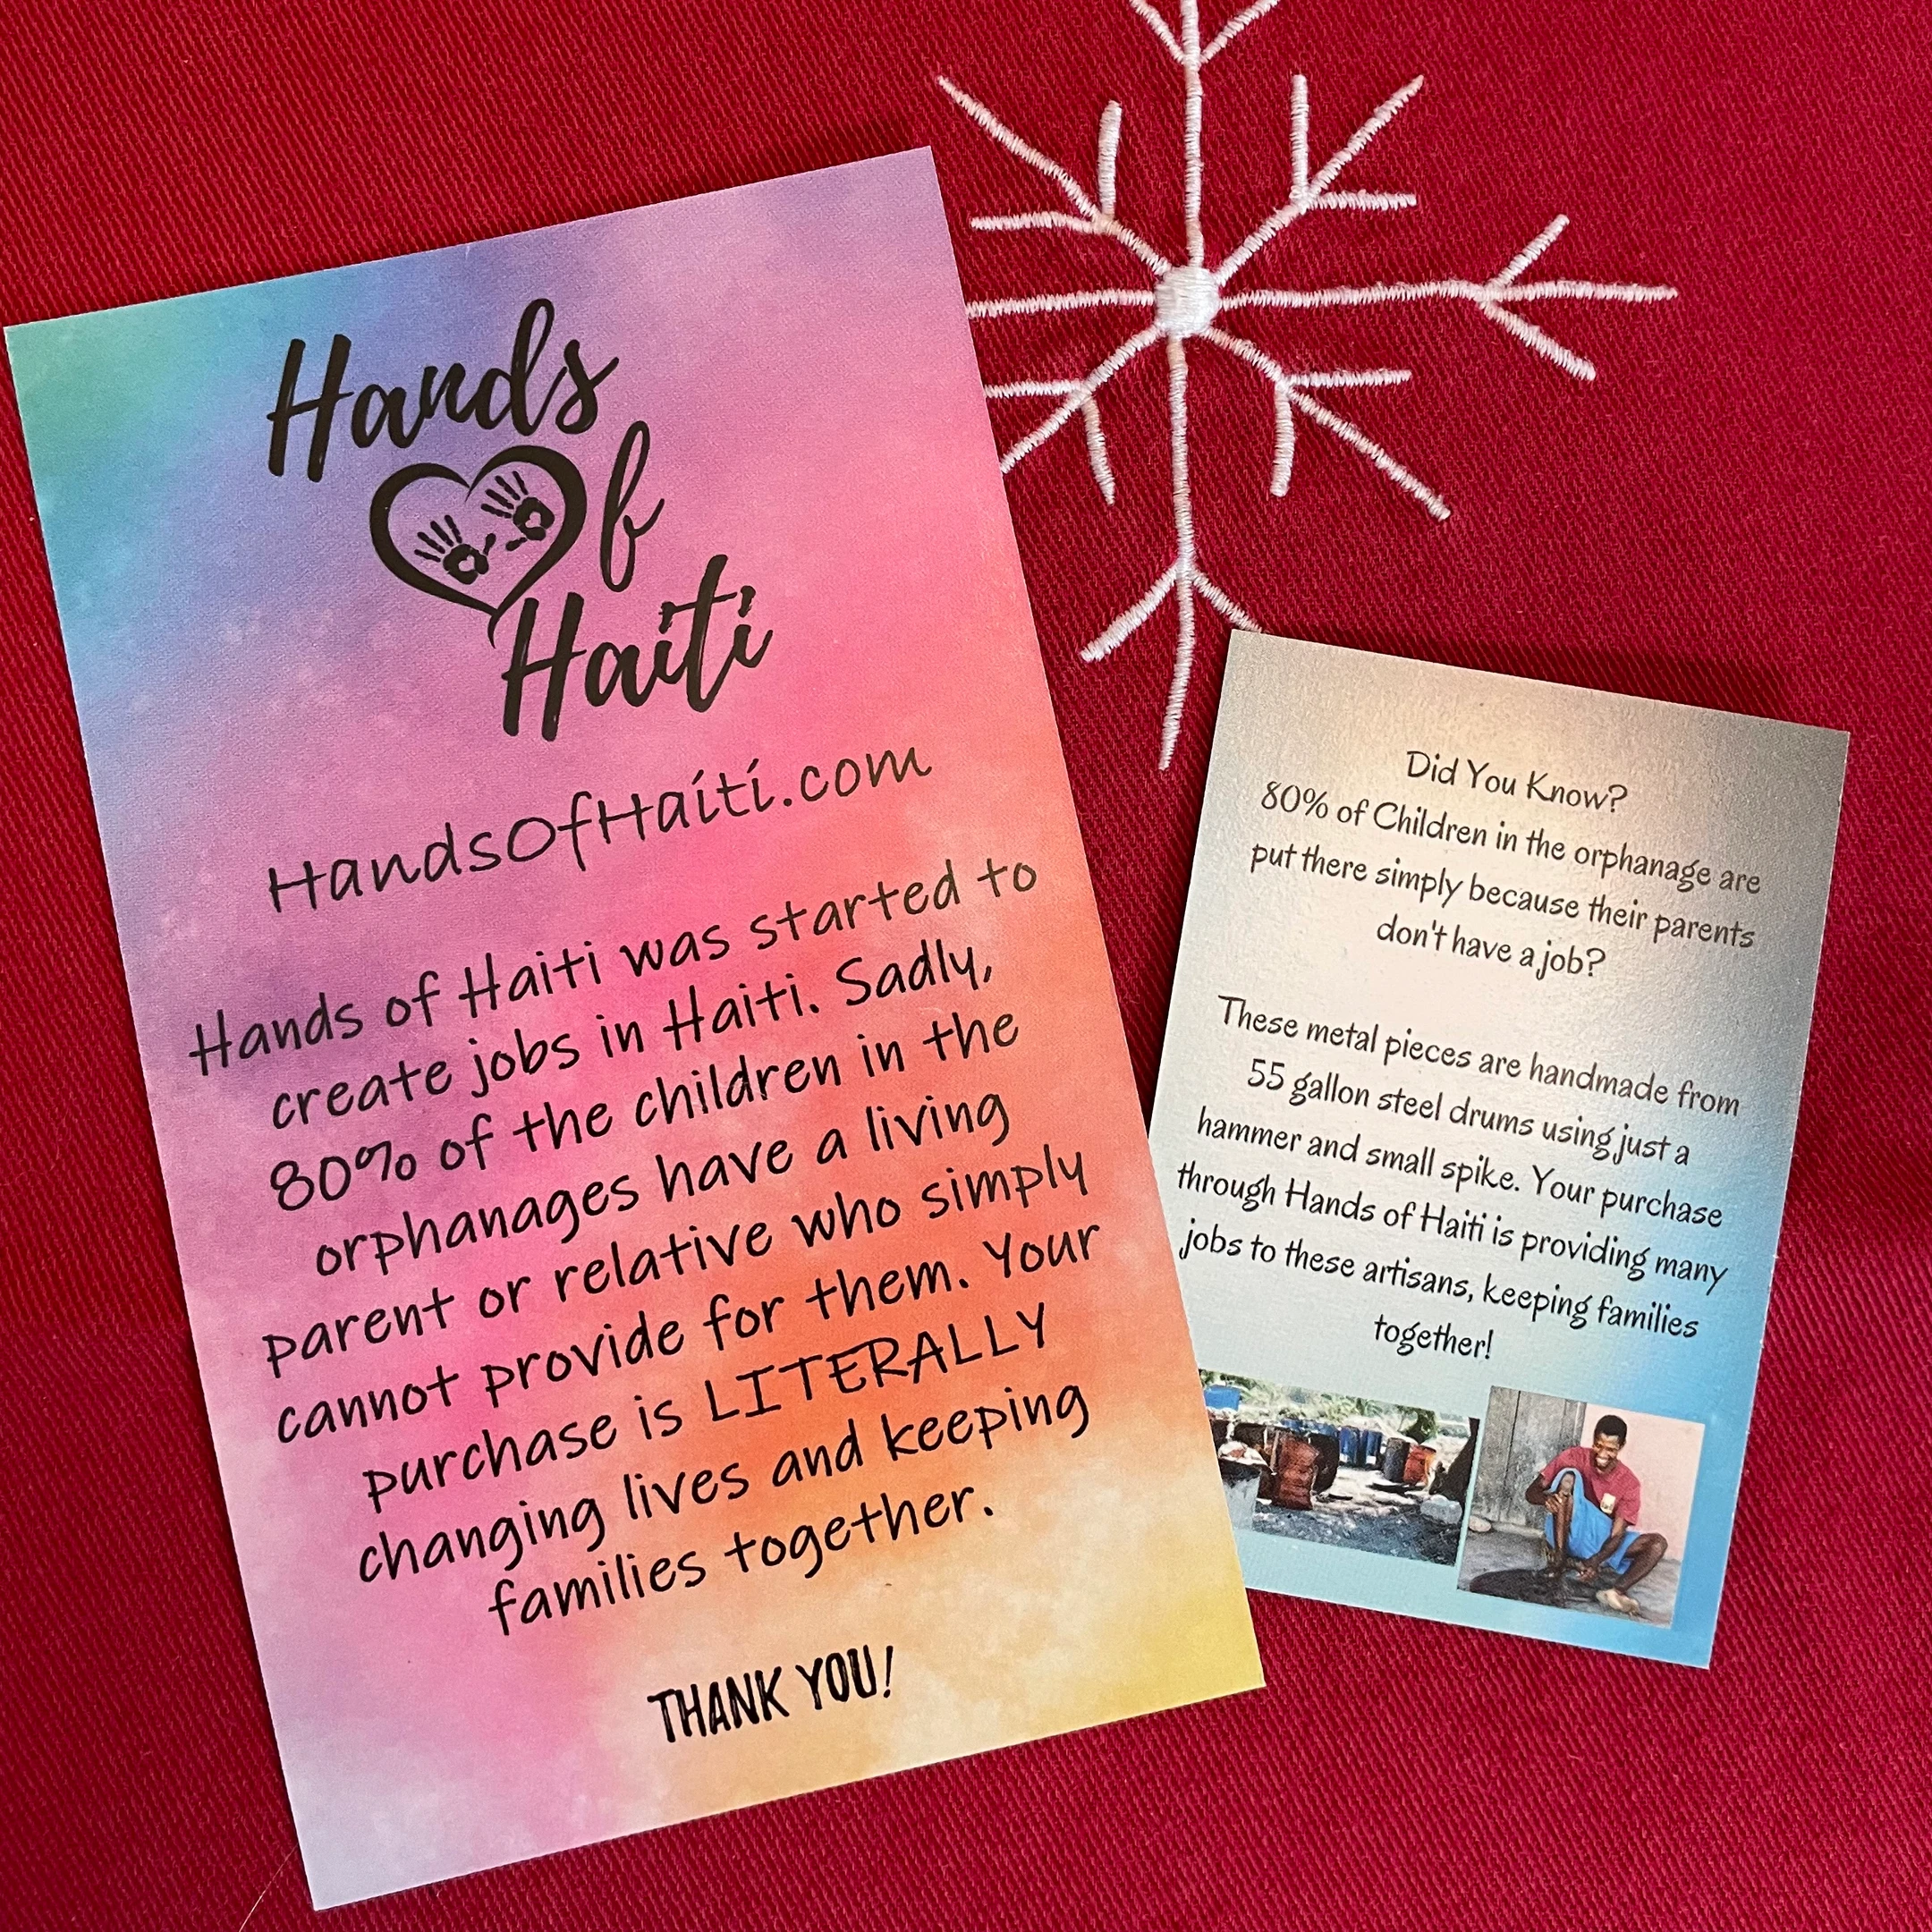 Hands
Of
Haiti
HandsOfHaiti.com
Hands of Haiti was started to
create jobs in Haiti. Sadly,
80% of the children in the
orphanages have a living
parent or relative who simply
cannot provide for them. Your
purchase is LITERALLY
changing lives and keeping
families together.
THANK YOU!
Did You Know?
80% of Children in the orphanage are
put there simply because their parents
don't have a job?
These metal pieces are handmade from
55 gallon steel drums using just a
hammer and small spike. Your purchase
through Hands of Haiti is providing many
jobs to these artisans, keeping families
together!